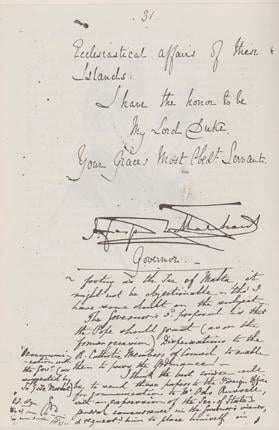 31.
Ecclesiastical affairs of these
Islands.
I have the honor to be
My Lord Duke,
Your Grace's Most Obedt. Servant.
Governor
footing in the See of Malta, it
might not be objectionable - this I
have some doubt on the subject.
The Governor's 3d. proposal is that
the Pope should grant (as on the
former occasion) Dispensations to the
R. Catholic Members of Council, to enable
them to pass the Ordinance.
I think the best course will
be to send these papers to the Foreign Office
for communication to
with an expression of the Sec. of State's
general concurrence in the Governor's views,
& request him to place himself in
communi-
cation with
the Govr. (as
suggested by